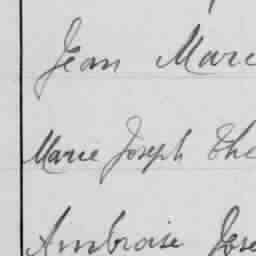 Jean Marc
Marie Joseph The
Ambroise Jose